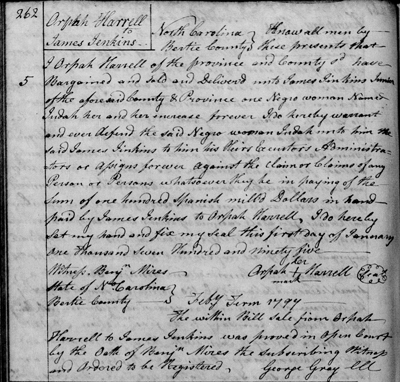 262
Orpah Harrell
To
James Jenkins
North Carolina } Know all men by
Bertie County } these presents that
I Orpah Harrell of the province and County sd. have
5
Bargained and Sold and Delivered unto James Jinkins Senior
of the aforesaid County & Province one Negro woman Named
Judah her and her increase forever I do hereby warrant
and ever defend the said Negro woman Judah unto him the
said James Jenkins to him his Heirs Executors Administra-
tors or Assigns forever against the claim or Claims of any
Person or Persons whatsoever he in paying of the
Sum of one hundred Spanish mill'd Dollars in hand
paid by James Jenkins to Orpah Harrell, I do hereby
set my hand and fix my seal this first day of January
one thousand Seven Hundred and ninety five
Witness. Benj. Mires
Orpah her + mark Harrell (Seal)
State of No. Carolina }
Bertie County } Feby Term 1797
The within Bill Sale from Orpah
Harrell to James Jenkins was proved in Open Court
by the Oath of Benja. Mires the subscribing Witness
and Ordered to be Registered.
George Gray